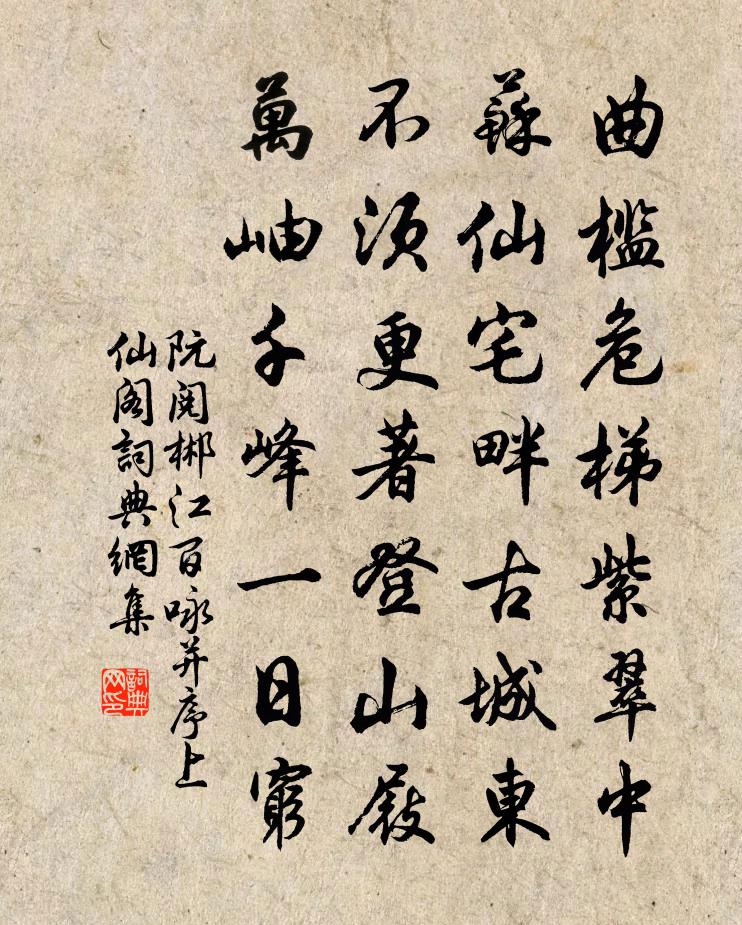 曲檻危梯紫翠中
蘇仙宅畔古城東
不須更著登山屐
萬岫千峰一日窮
阮閱郴江百咏并序上
仙閣詞典網集
詞典
网印